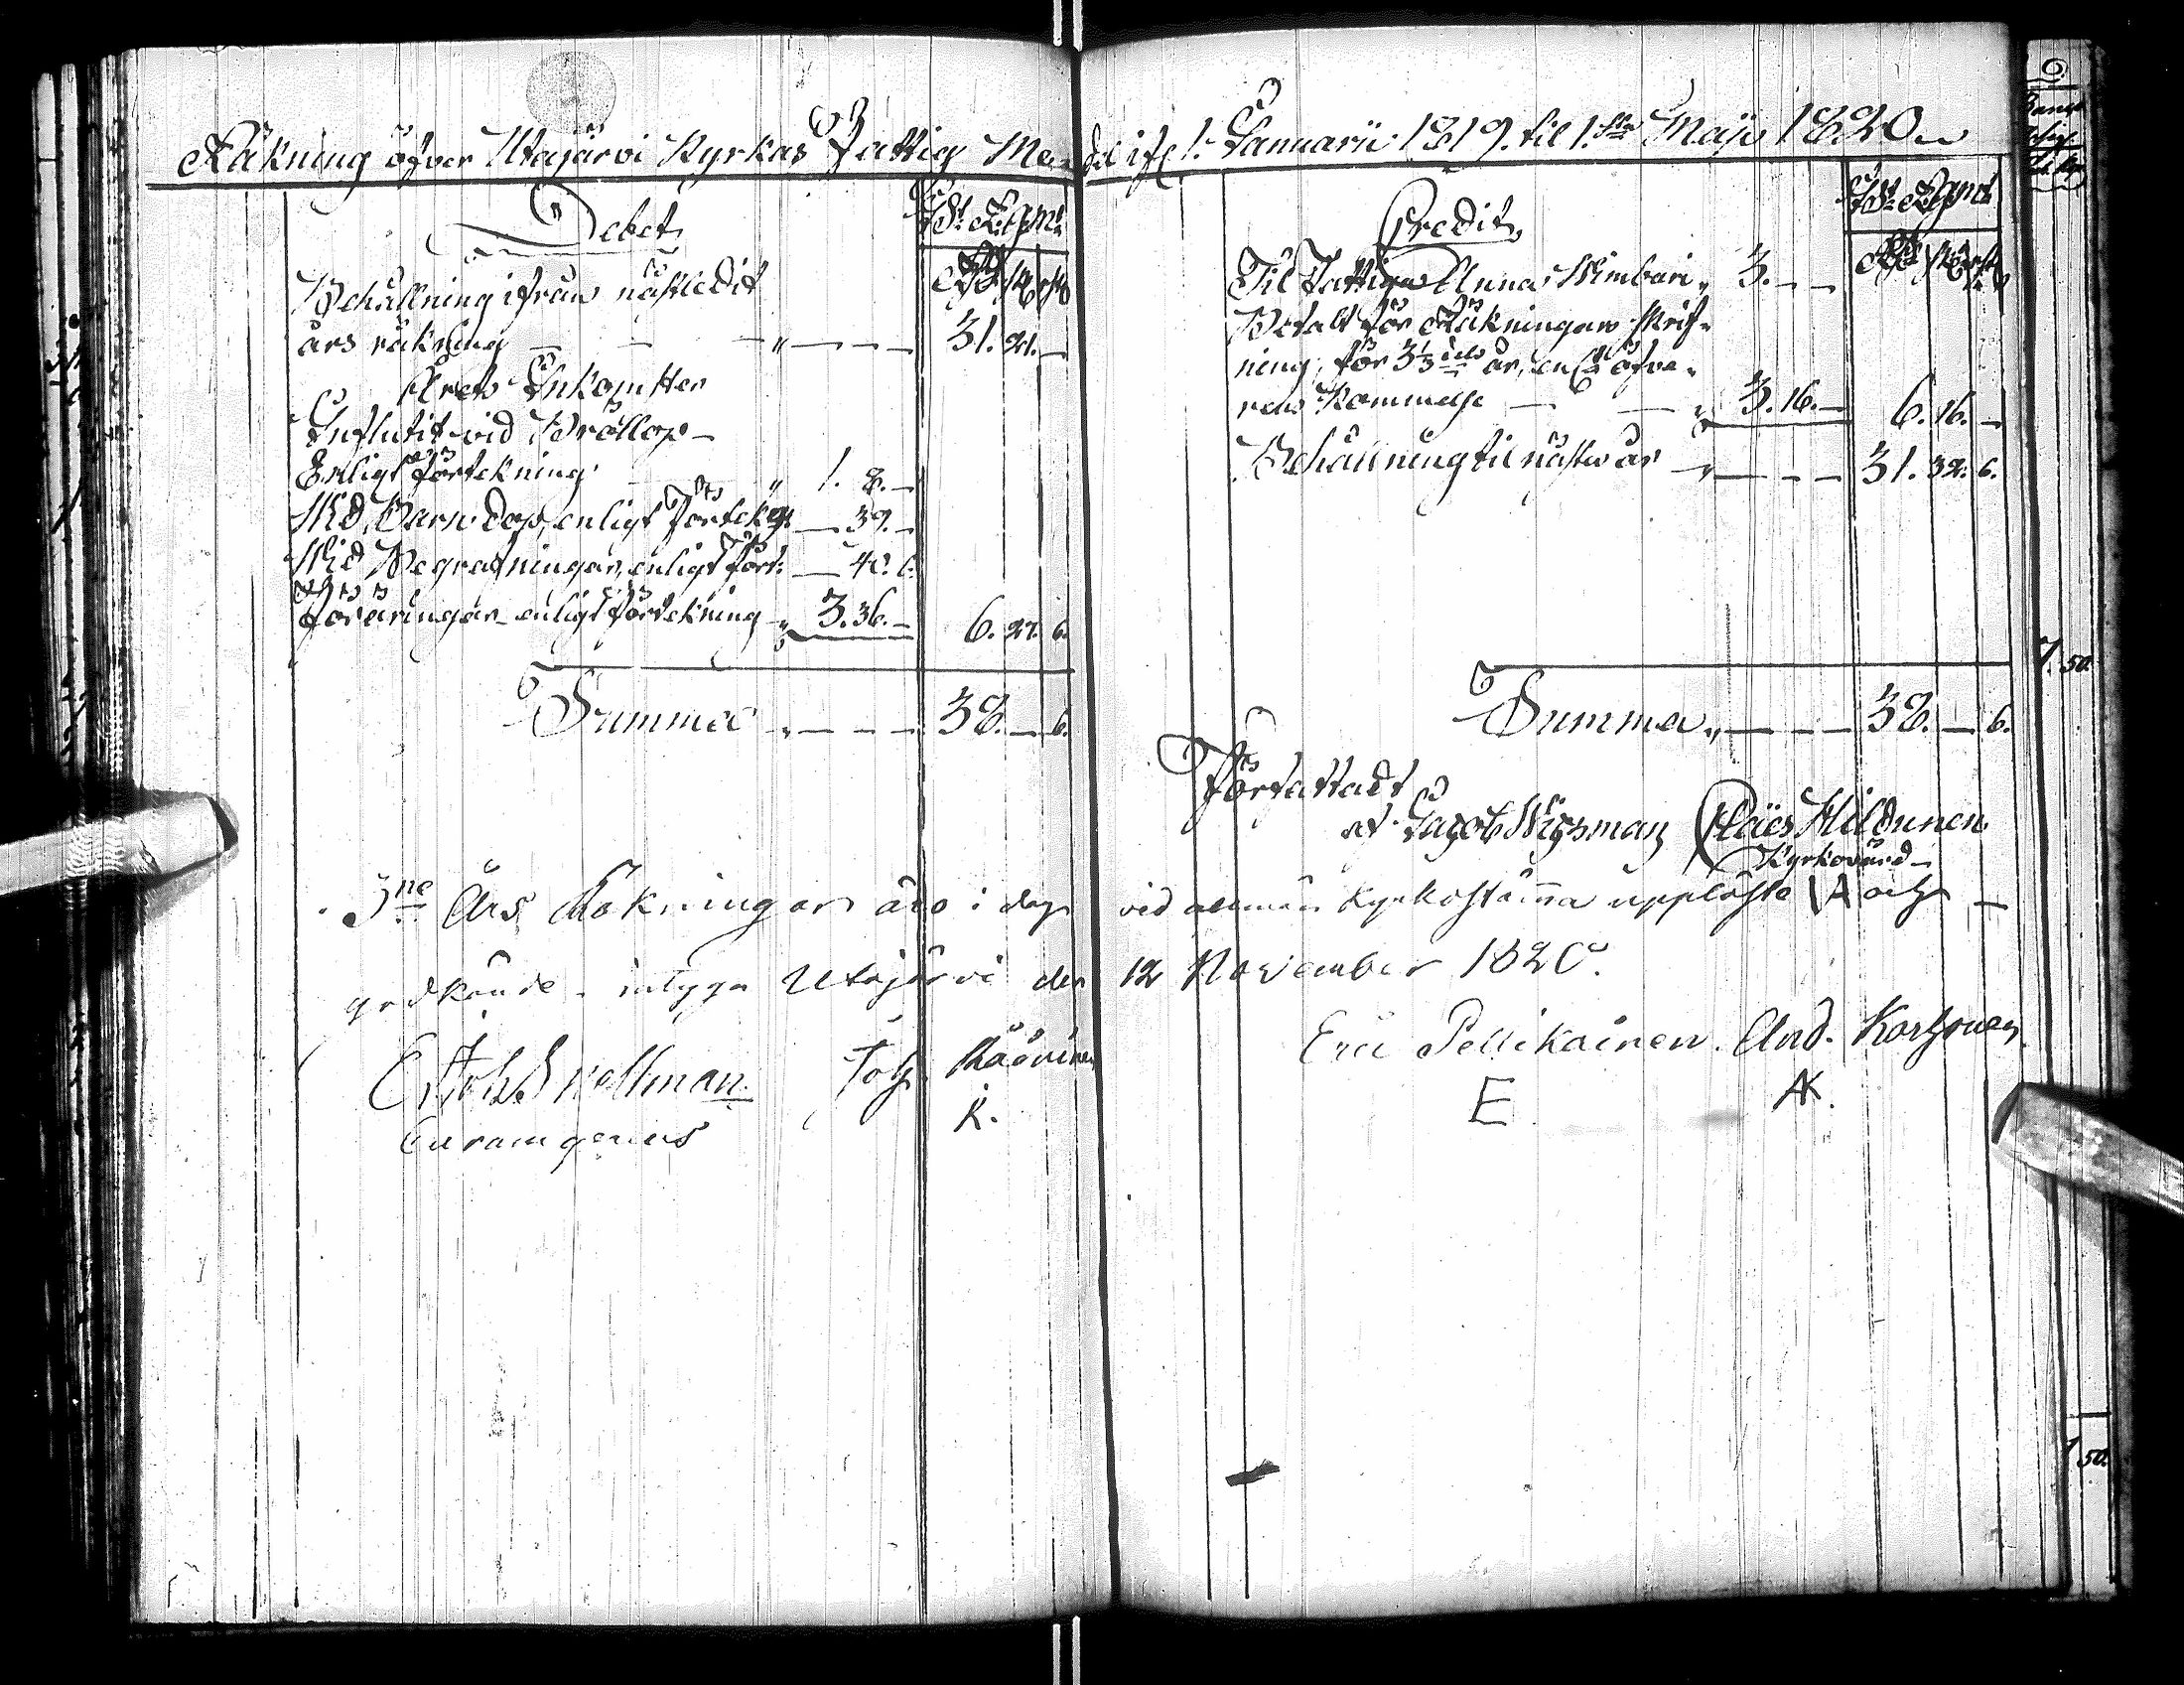 Räkning öfver Utajärvi Kyrkas Fattig Medel ifr. 1. Januarii 1819. til 1:sta Maji 1820
Debet
Rd sk rst
Behållning ifrån nästledit
års räkning 31. 21. —
Årets Inkomster
Influtit vid Bröllop
Enligt förtekning 1. 8. —
Wid Barndop, enligt förtekg — 39. —
Wid Begrafningar, enligt fört: — 40. 6.
foräringar enligt förtekning 3. 36. — 6. 27. 6.
Summa 38. — 6.
Credit
Rd sk rst
Til Fattiga Anna Wimbari 3. —
Betalt för Räkningars skrif-
ning, för 3 1/3 dels år, en öfve-
rens kommelse — 3. 16. — 6. 16. —
Behållning til nästa år — 31. 32. 6.
Summa 38. — 6.
Författadt
af Jacob Wigsman Claës Hildunen
Kyrkovärd
3ne Års Räkningar äro i dag vid allmän Kyrkostämma uppläste och
godkände, intyga Utajärvi den 12 November 1820.
C Joh. Snellman Joh. Määtinen Eric Pellikainen And. Korhonen
Curam gerens K. E AK.
7. 50.
50.